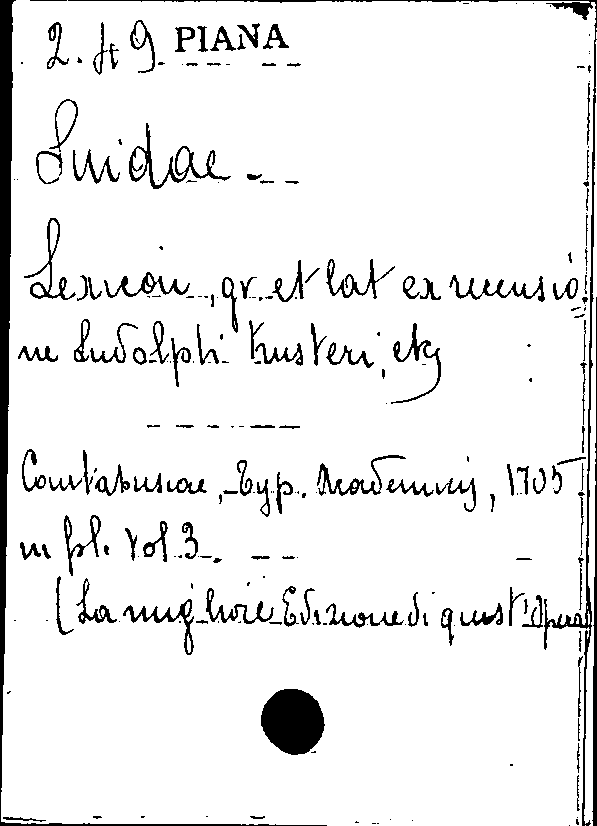 2. H 9 PIANA
Suidae.
Lexicon, gr. et lat ex recensio
ne Ludolphi Kusteri, etc
Cantabrisiae, Typ. Academicis, 1705
in fol. Vol 3.
(La migliore Edizione di quest'Opera)